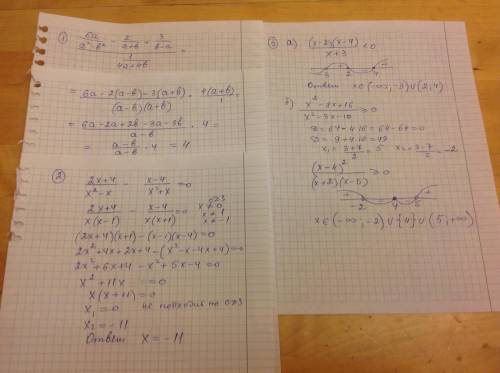 1) (6a/(a²-b²) - 2/(a+b) + 3/(b-a)) / (1/(4a+4b)) =
= (6a-2(a-b)-3(a+b))/((a-b)(a+b)) · 4(a+b)/1 =
= (6a-2a+2b-3a-3b)/(a-b) · 4 =
= (a-b)/(a-b) · 4 = 4
2) (2x+4)/(x²-x) - (x-4)/(x²+x) = 0
(2x+4)/(x(x-1)) - (x-4)/(x(x+1)) = 0
ОДЗ
x ≠ 0
x ≠ 1
x ≠ -1
(2x+4)(x+1) - (x-1)(x-4) = 0
2x²+4x+2x+4-(x²-x-4x+4)=0
2x²+6x+4-x²+5x-4=0
x²+11x =0
x(x+11)=0
x₁=0 не подходит по ОДЗ
x₂=-11
Ответ x=-11
3) а) ((x-2)(x-4))/(x+3) < 0
- + - +
-3 2 4
Ответ x∈(-∞;-3)∪(2;4)
б) (x²-8x+16)/(x²-3x-10) ≥ 0
D=64-4·16=64-64=0
D=9+4·10=49
x₁=(3+7)/2=5 x₂=(3-7)/2=-2
(x-4)²/((x+2)(x-5)) ≥ 0
+ - - +
-2 4 5
x∈(-∞;-2)∪{4}∪(5;+∞)